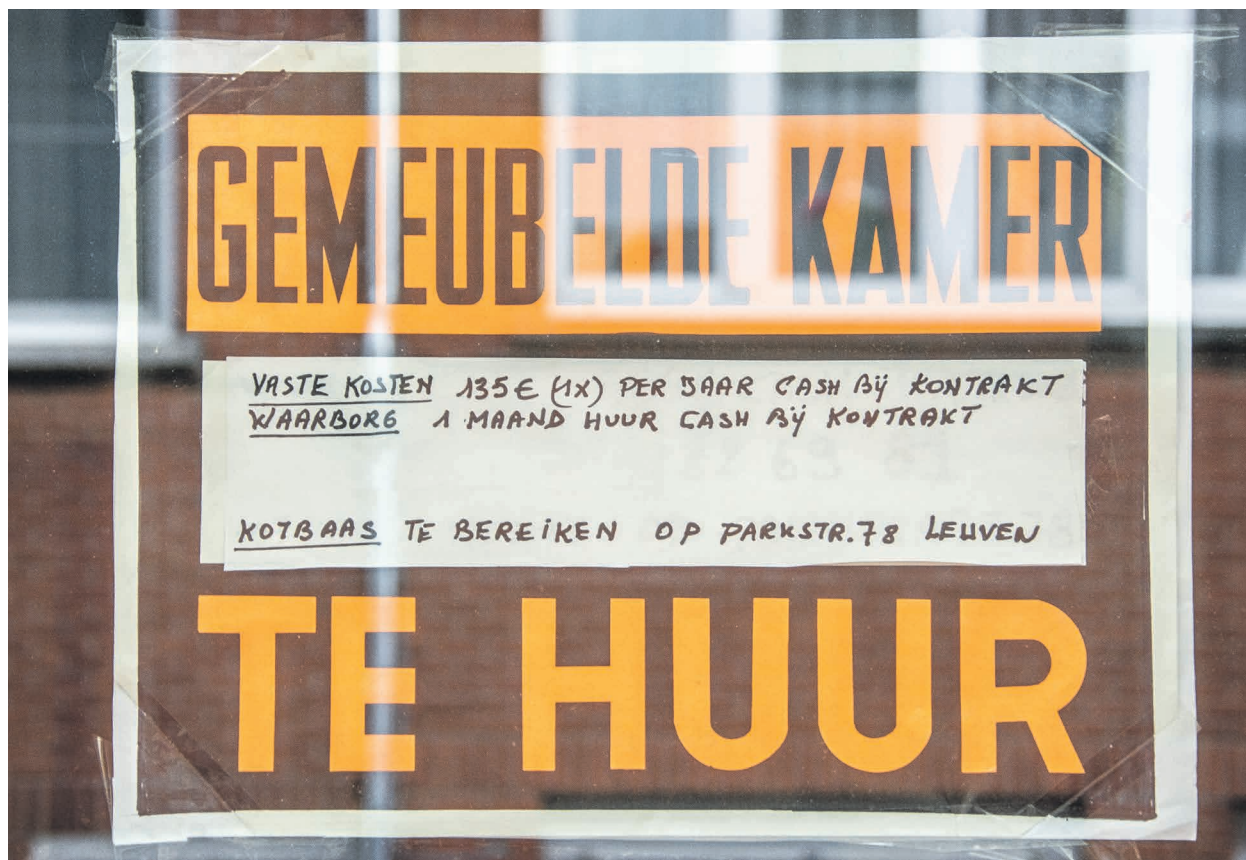 GEMEUBELDE KAMER
VASTE KOSTEN 135€ (1X) PER JAAR CASH Bÿ KONTRAKT
WAARBORG 1 MAAND HUUR CASH Bÿ KONTRAKT
KOTBAAS TE BEREIKEN OP PARKSTR.78 LEUVEN
TE HUUR